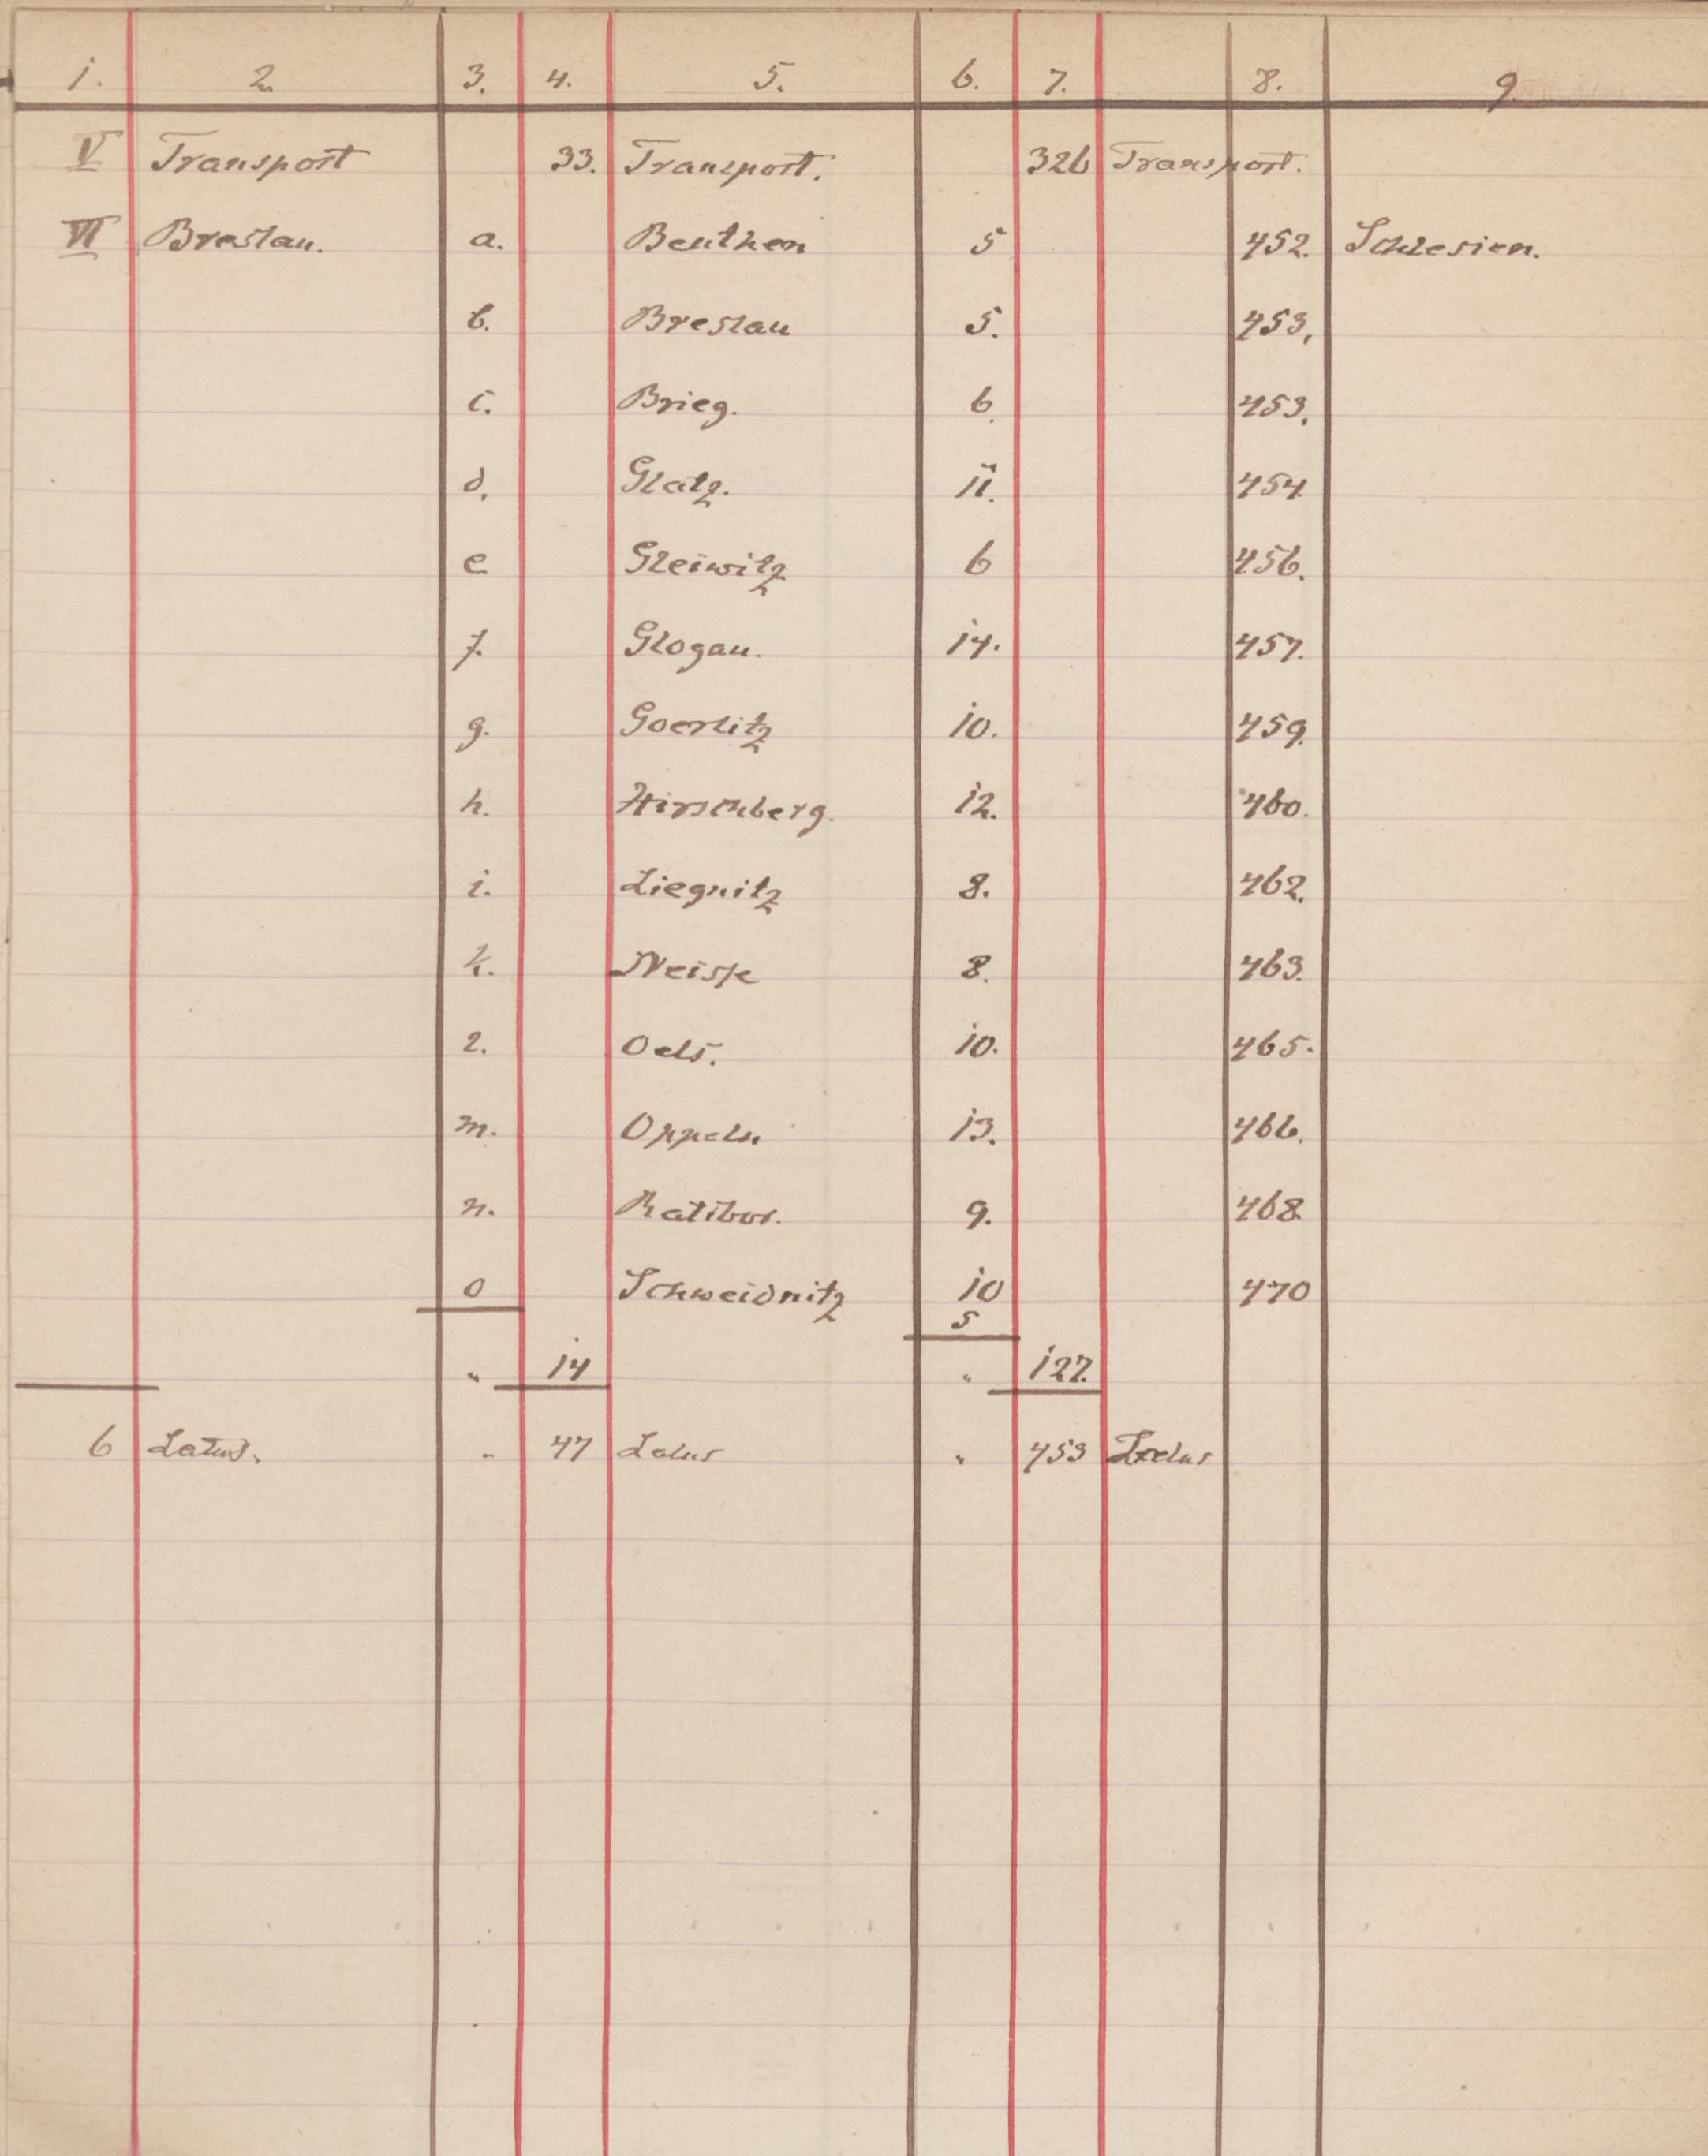 1. 2. 3. 4. 5. 6. 7. 8. 9.
V Transport 33. Transport. 326 Transport.
VI Breslau. a. Beuthen 5 452. Schlesien.
b. Breslau 5. 453.
c. Brieg. 6. 453.
d. Glatz. 11. 454.
e Gleiwitz 6 456.
f. Glogau. 14. 457.
g. Goerlitz 10. 459.
h. Hirschberg. 12. 460.
i. Liegnitz 8. 462.
k. Neisse 8. 463.
l. Oels. 10. 465.
m. Oppeln 13. 466.
n. Ratibor. 9. 468.
o Schweidnitz 10 470
5
" 14 " 127.
6 Latus. " 47 Latus " 453 Latus